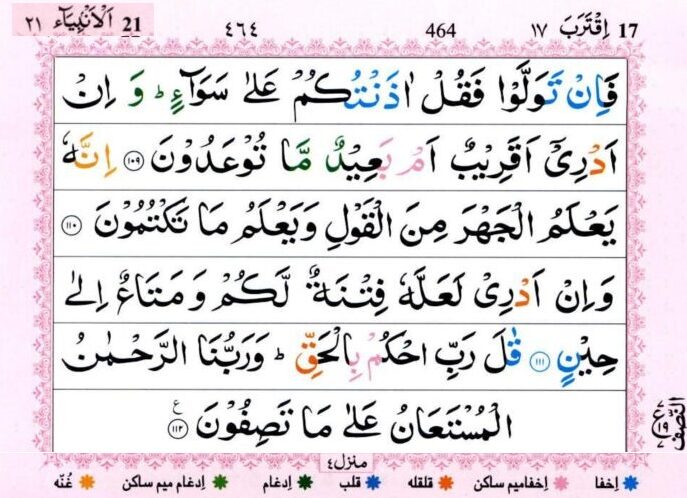 اِقْتَرَبَ 17 ١٧ 464 ٤٦٤ اَلْاَنْبِيَآء 21 ٢١
فَاِنْ تَوَلَّوْا فَقُلْ اٰذَنْتُكُمْ عَلٰى سَوَآءٍ ؕ وَ اِنْ
اَدْرِیْۤ اَقَرِیْبٌ اَمْ بَعِیْدٌ مَّا تُوْعَدُوْنَ ﴿۱۰۹﴾ اِنَّهٗ
یَعْلَمُ الْجَهْرَ مِنَ الْقَوْلِ وَیَعْلَمُ مَا تَكْتُمُوْنَ ﴿۱۱۰﴾
وَاِنْ اَدْرِیْ لَعَلَّهٗ فِتْنَةٌ لَّكُمْ وَمَتَاعٌ اِلٰى
حِیْنٍ ﴿۱۱۱﴾ قٰلَ رَبِّ احْكُمْ بِالْحَقِّ ؕ وَرَبُّنَا الرَّحْمٰنُ
الْمُسْتَعَانُ عَلٰى مَا تَصِفُوْنَ ﴿۱۱۲﴾ ع
النّصف ع ١٩
منزل ٤
اِخفا اِخفامیم ساكن قلقله قلب اِدغام اِدغام میم ساكن غُنّه